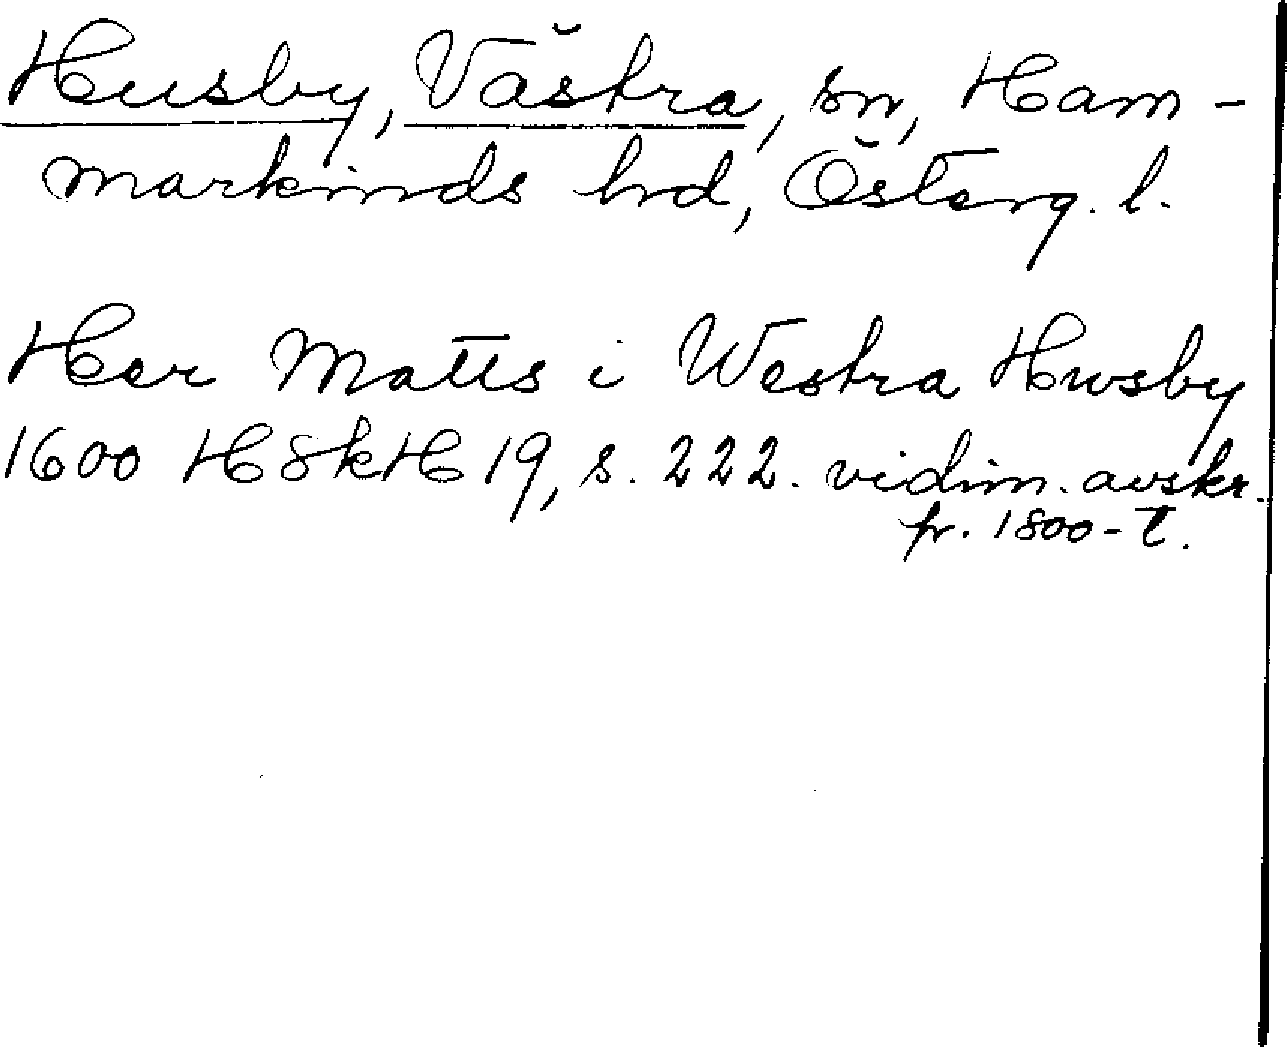 Husby, Västra, sn, Ham-
markinds hd, Österg. l.
Her Matts i Westra Hwsby
1600 HSkH 19, s. 222. vidim. avskr.
fr. 1800-t.